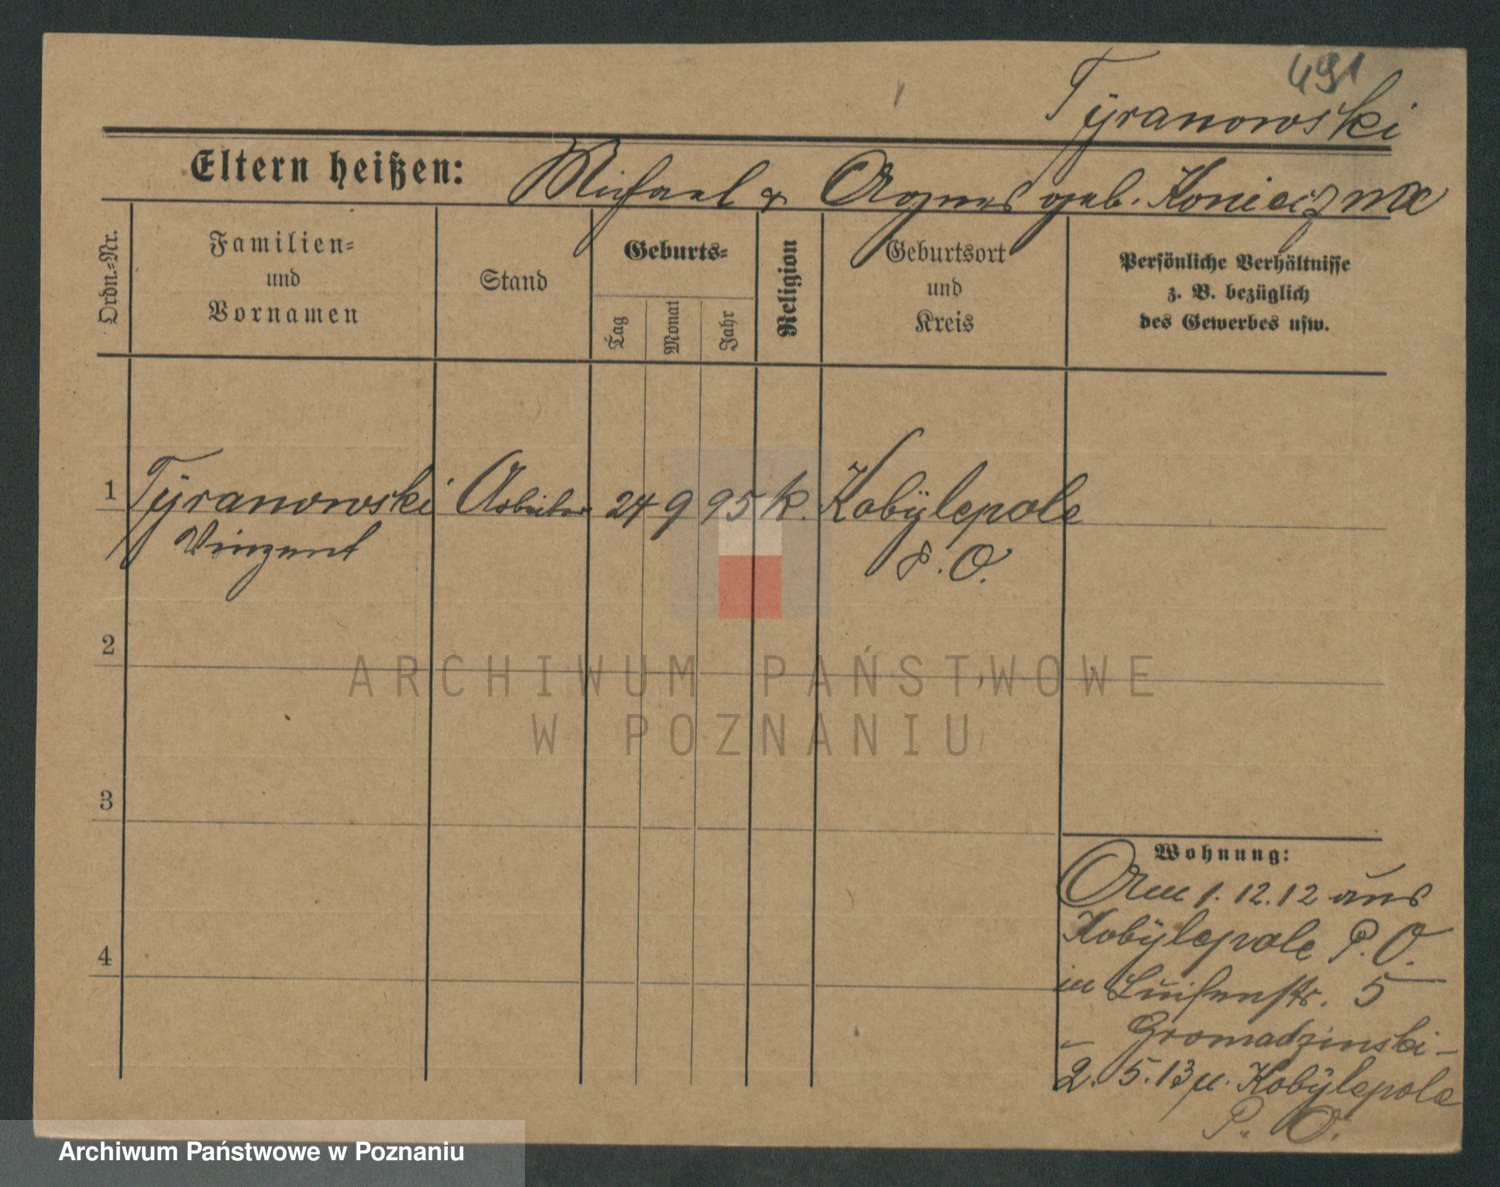 491
Tÿranowski
Eltern heißen: Michael & Agnes geb. Konieczna
Ordn.-Nr.
Familien-
und
Vornamen
Stand
Geburts-
Tag
Monat
Jahr
Religion
Geburtsort
und
Kreis
Persönliche Verhältnisse
z. B. bezüglich
des Gewerbes usw.
1 Tÿranowski Arbeiter 24 9 95 k. Kobÿlepole
Vinzent P. O.
2
3
4
Wohnung:
Am 1. 12. 12 aus
Kobÿlepole P. O.
in Luisenstr. 5
- Gromadzinski -
2. 5. 13 n. Kobÿlepole
P. O.
ARCHIWUM PAŃSTWOWE
W POZNANIU
Archiwum Państwowe w Poznaniu